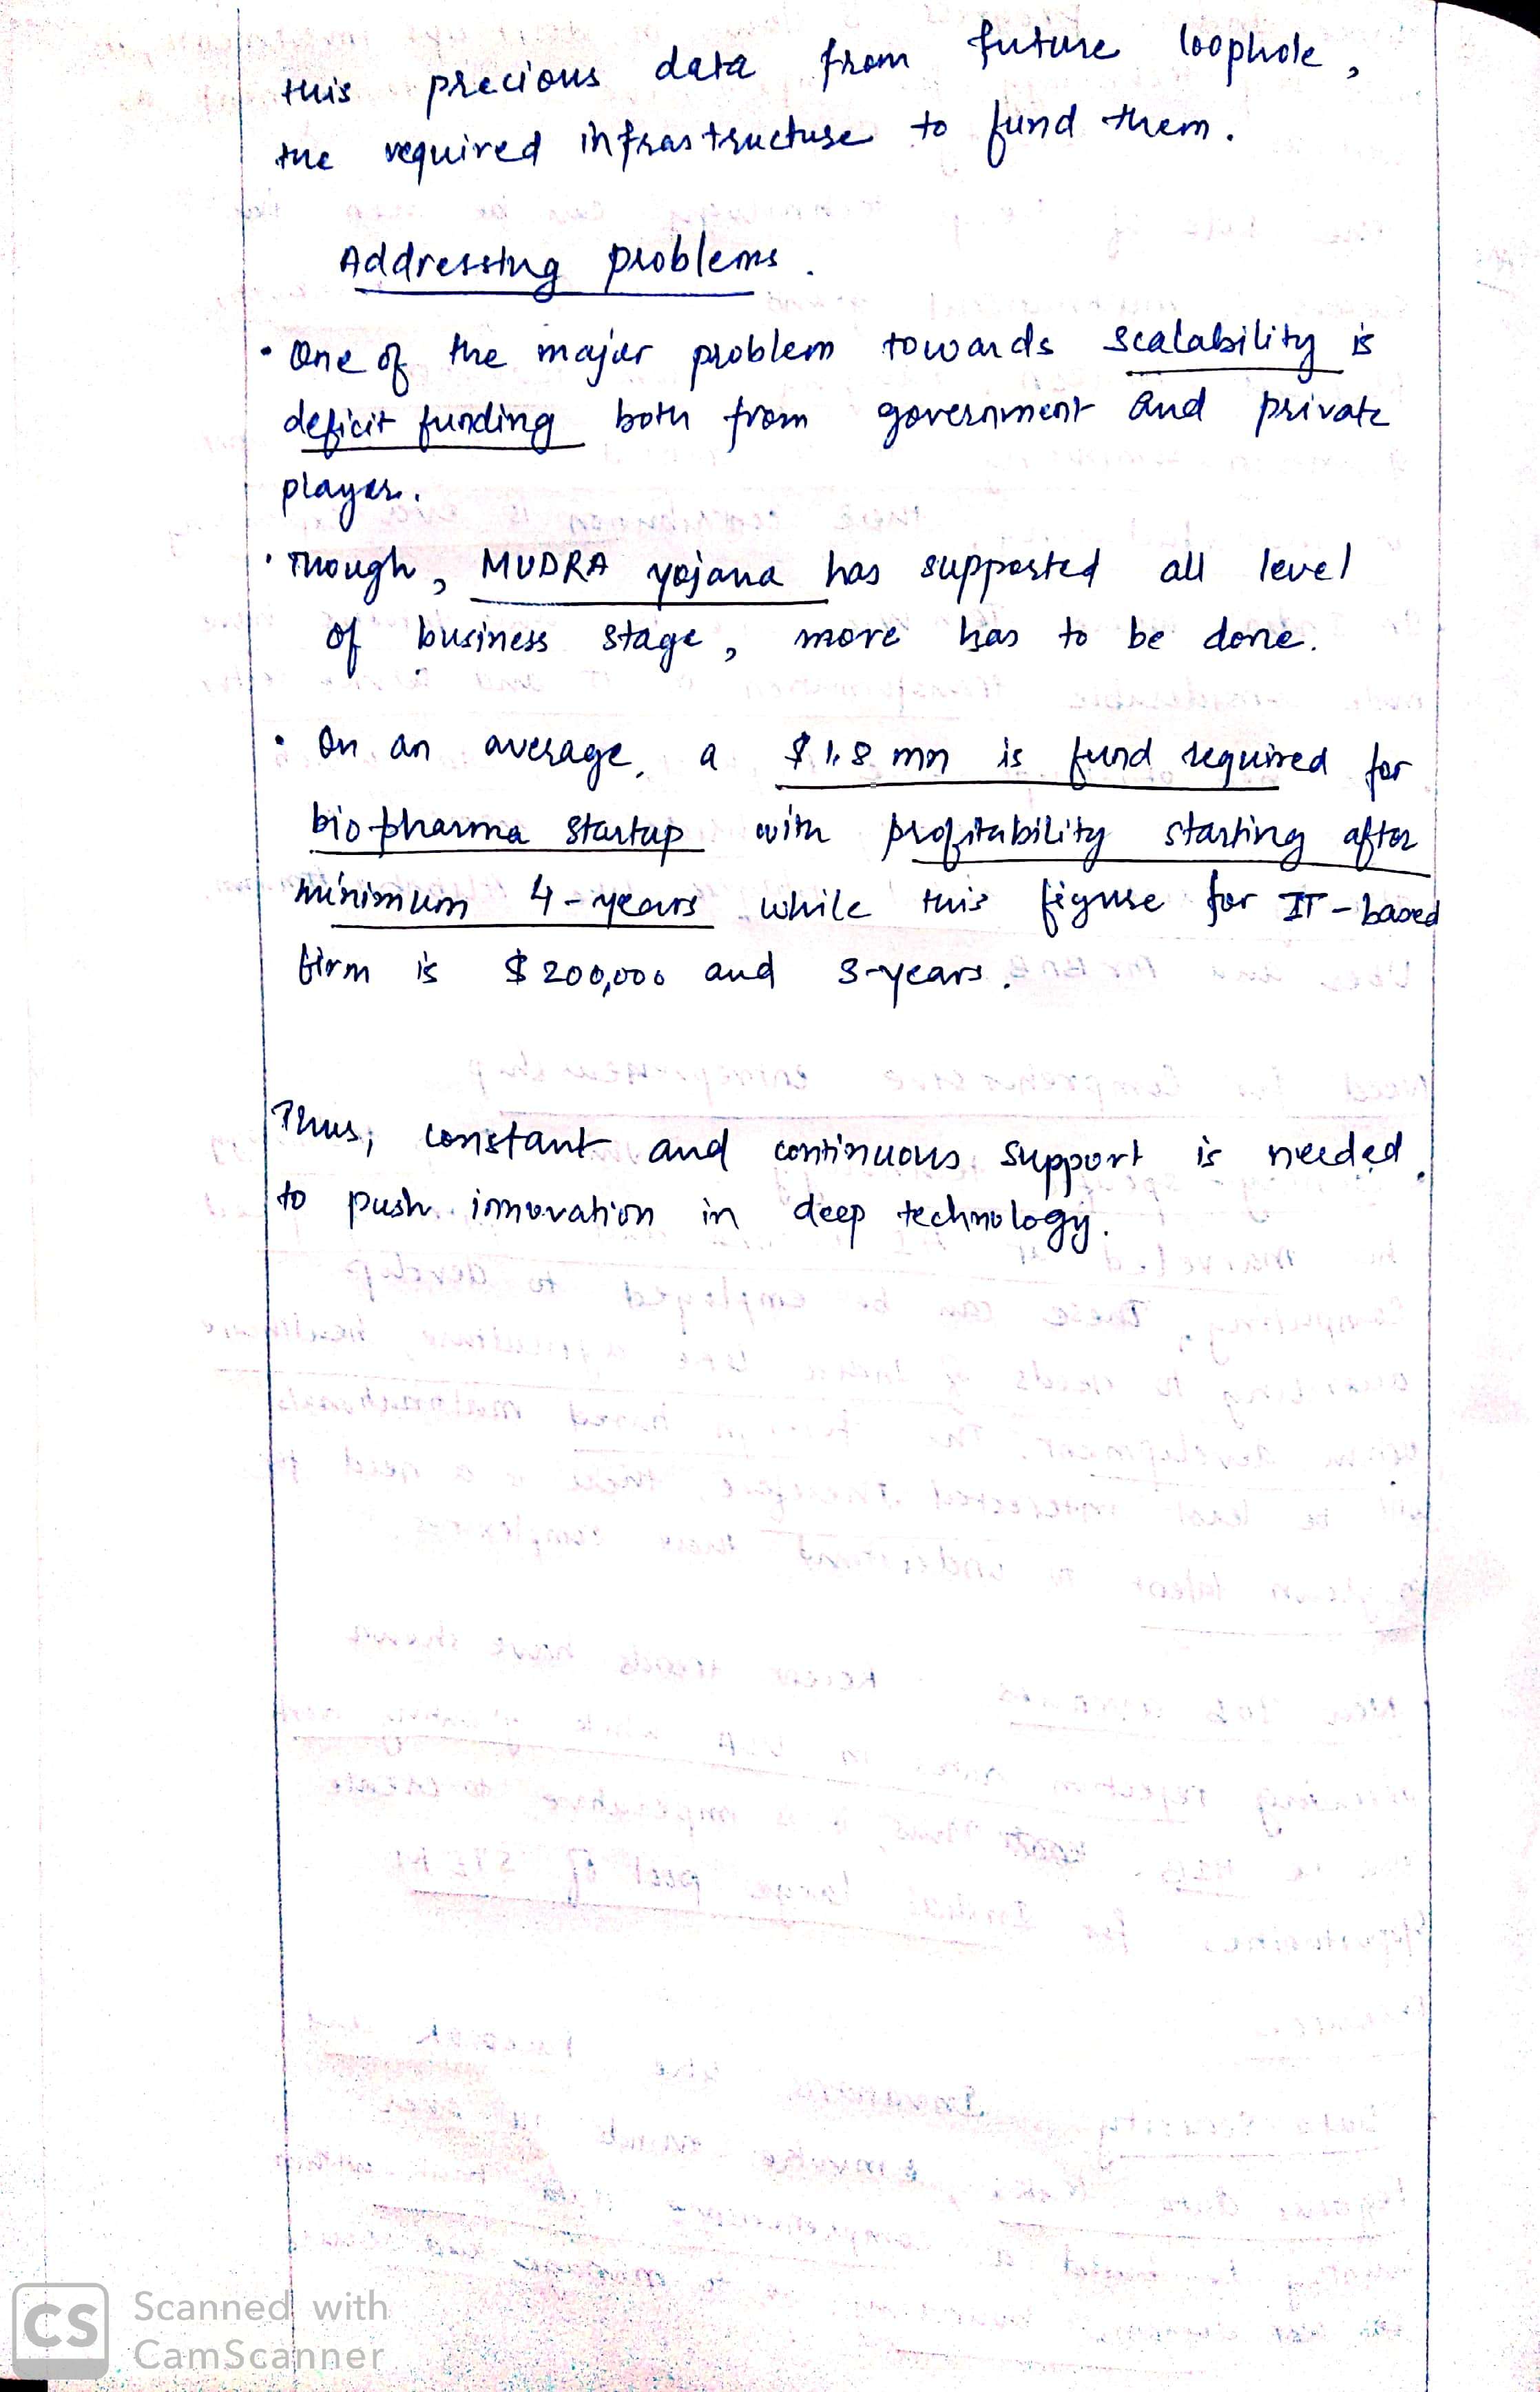 this precious data from future loophole,
the required infrastructure to fund them.
Addressing problems.
• One of the major problem towards scalability is
deficit funding both from government and private
player.
• Though, MUDRA yojana has supported all level
of business stage, more has to be done.
• On an average, a $1.8 mn is fund required for
biopharma startup with profitability starting after
minimum 4-years while this figure for IT-based
firm is $200,000 and 3-years.
Thus, constant and continuous support is needed
to push innovation in deep technology.
CS Scanned with
CamScanner